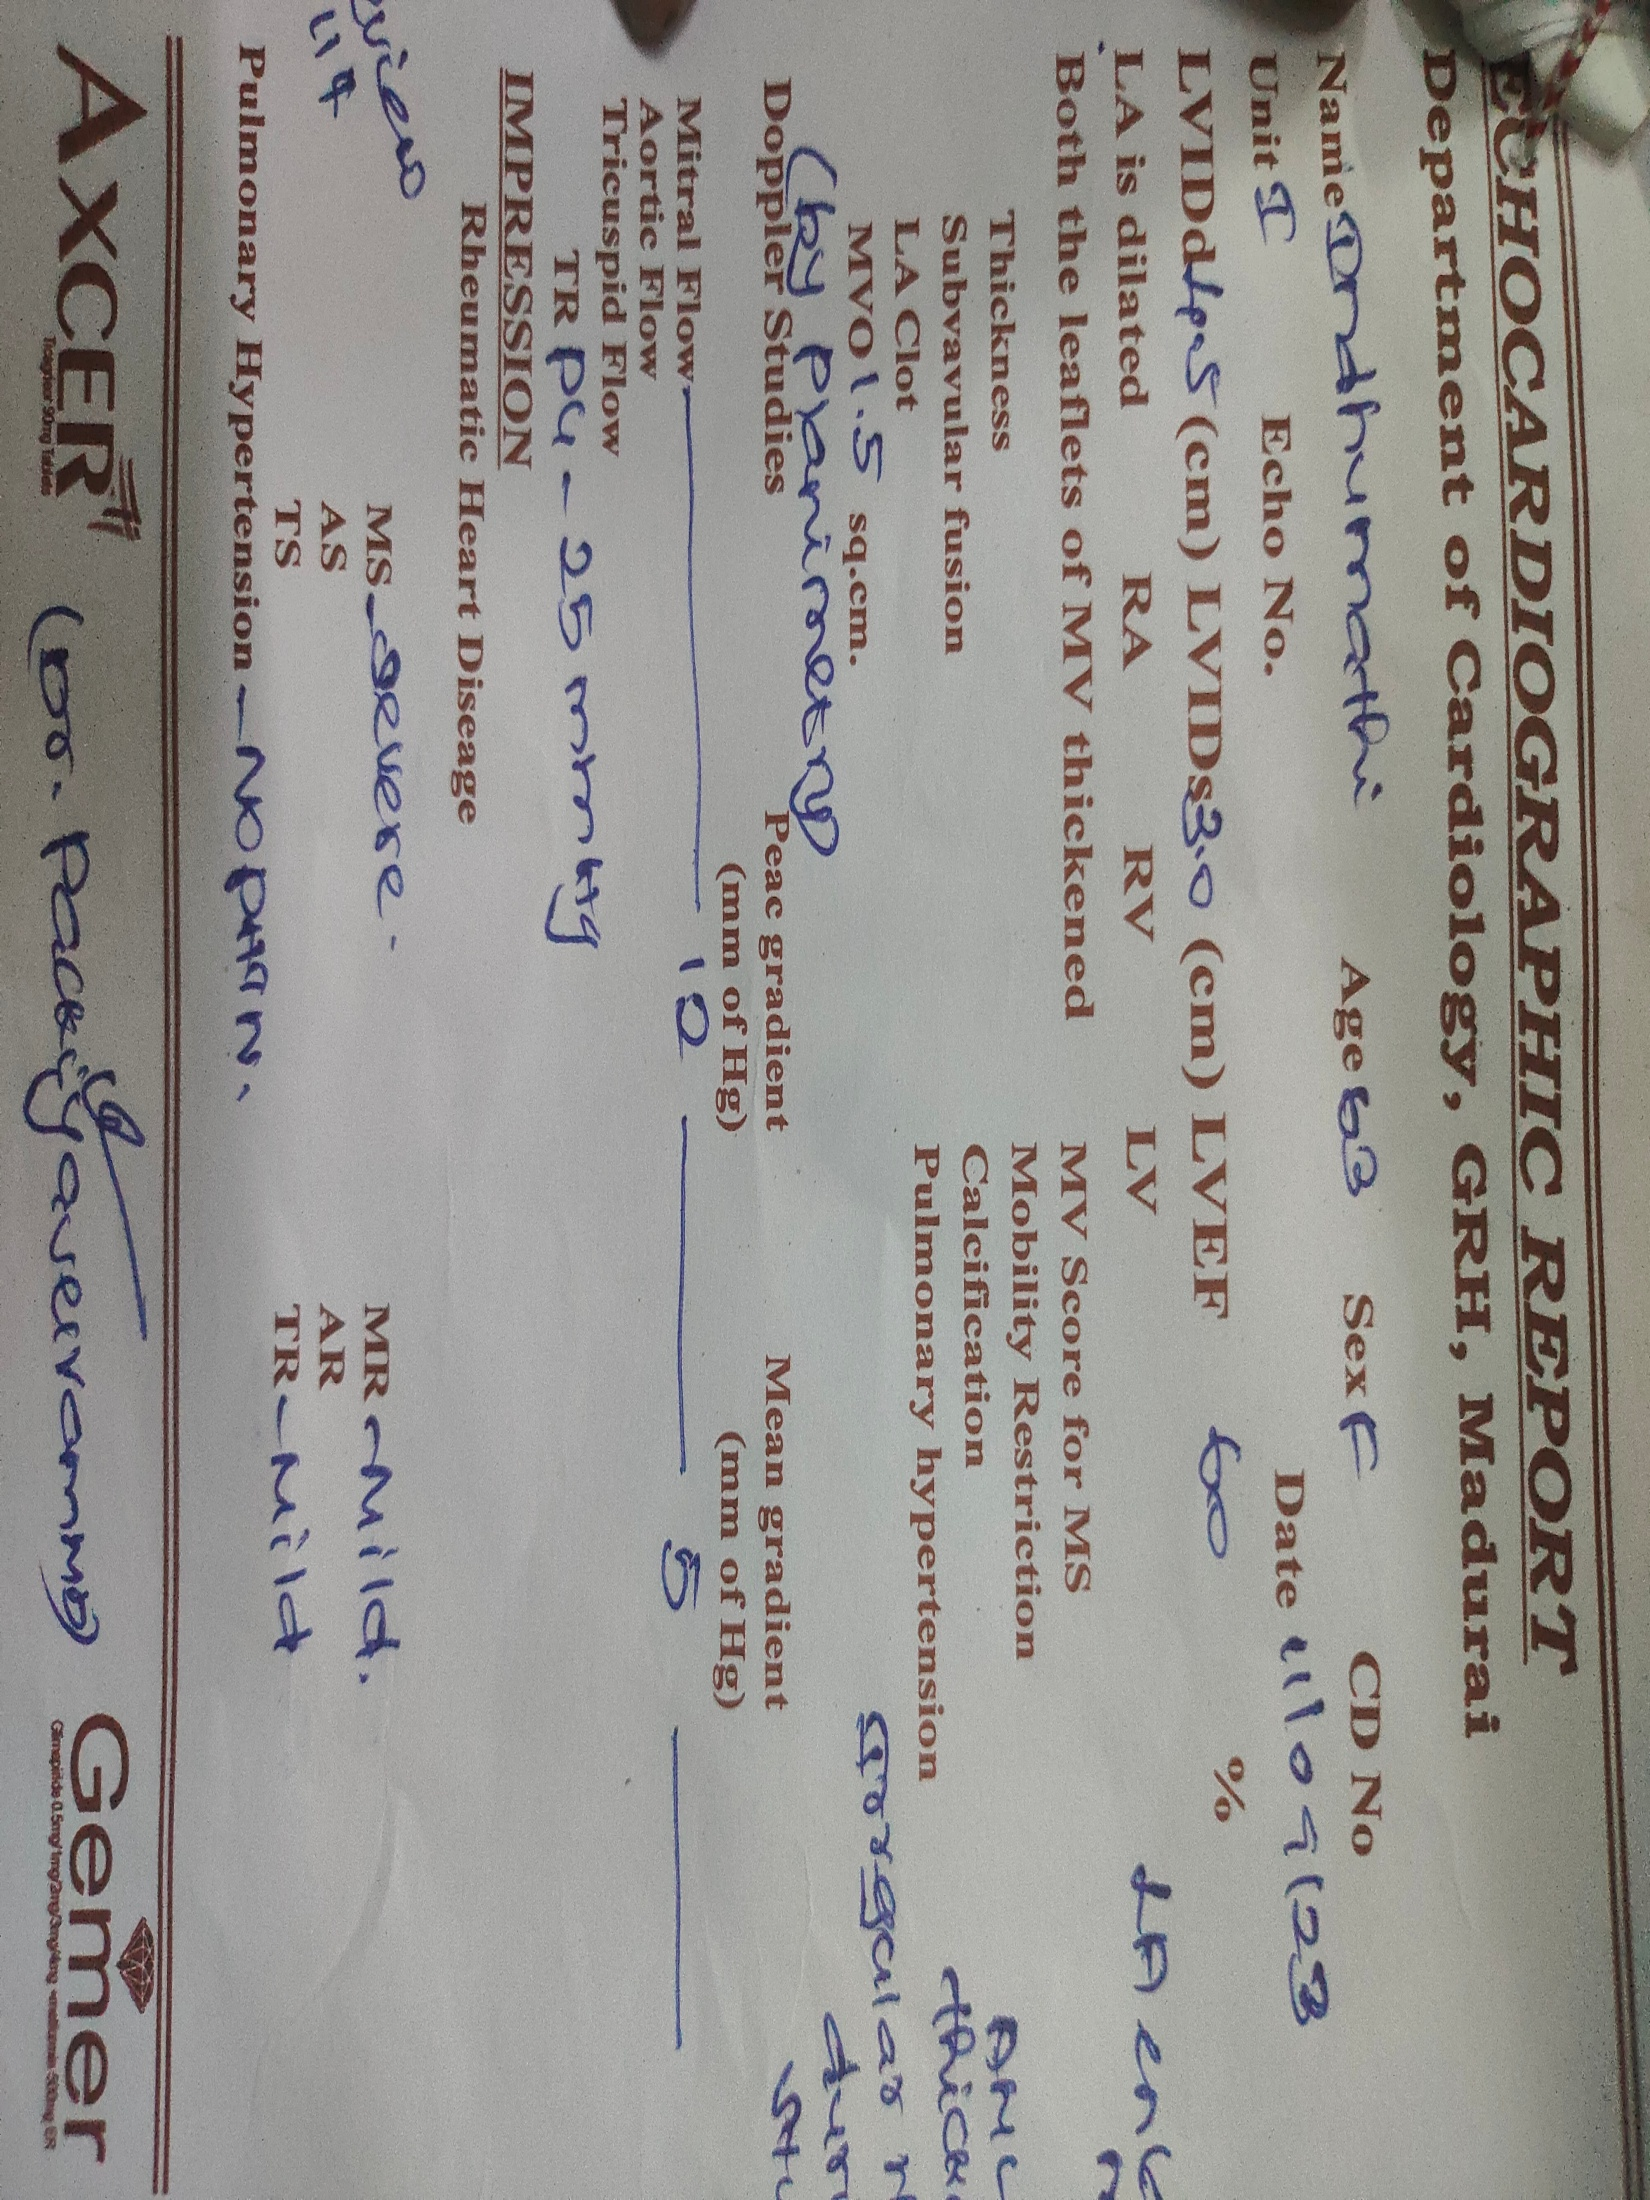 ECHOCARDIOGRAPHIC REPORT
Department of Cardiology, GRH, Madurai
Name Indhumathi Age 63 Sex F CD No
Unit I Echo No. Date 11/07/23
LVIDd 4.5 (cm) LVIDs 3.0 (cm) LVEF 60 %
LA is dilated RA RV LV LA enl
Both the leaflets of MV thickened MV Score for MS
Thickness Mobility Restriction AML
Subvavular fusion Calcification thick
LA Clot Pulmonary hypertension
MVO 1.5 sq.cm. Irregular
(by planimetry dur
Doppler Studies Peac gradient Mean gradient
(mm of Hg) (mm of Hg)
Mitral Flow 10 5
Aortic Flow
Tricuspid Flow
TR PG - 25 mmHg
IMPRESSION
Rheumatic Heart Diseage
MS - Severe. MR - Mild.
AS AR
TS TR - Mild
Pulmonary Hypertension - NO PHTN.
AXCER
Ticagrelor 90mg Tablets
Gemer